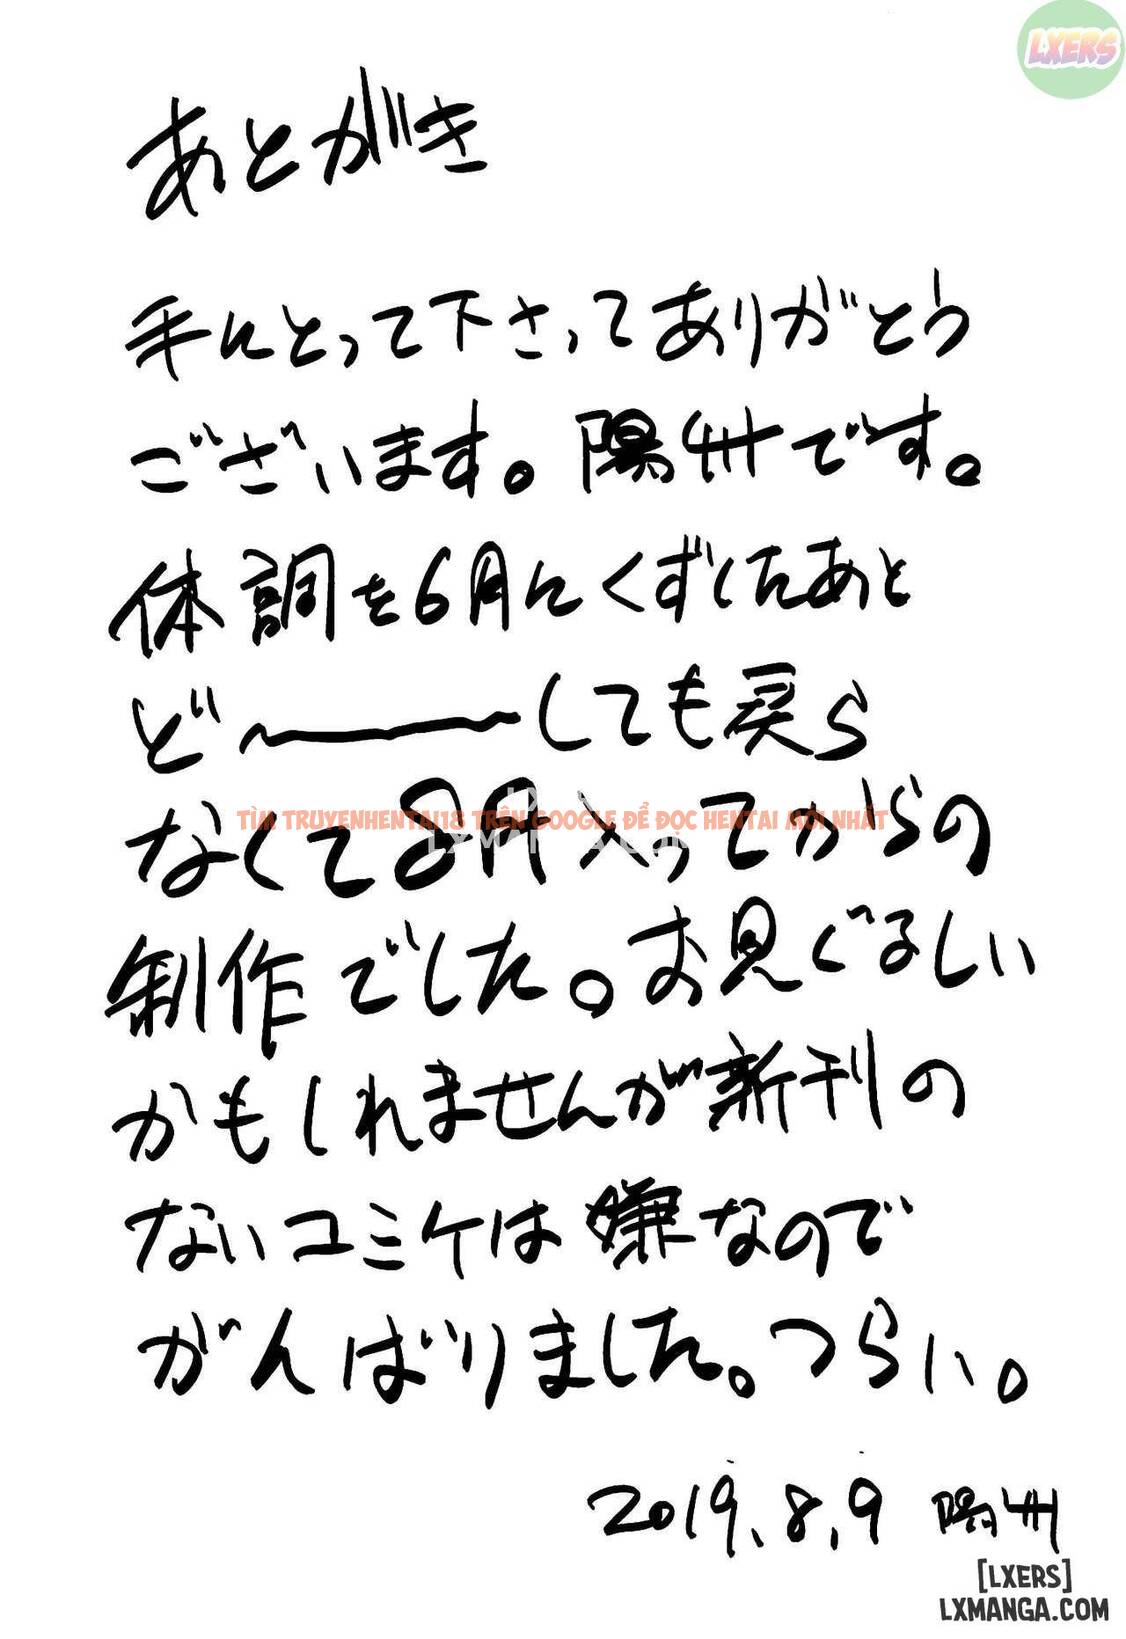 LXERS
あとがき
手にとって下さってありがとう
ございます。陽州です。
体調を6月にくずしたあと
ど〜しても戻ら
なくて8月入ってからの
TÌM TRUYENHENTAI18 TRÊN GOOGLE ĐỂ ĐỌC HENTAI MỚI NHẤT
制作でした。お見ぐるしい
かもしれませんが新刊の
ないコミケは嫌なので
がんばりました。つらい。
2019.8.9 陽州
[LXERS]
LXMANGA.COM